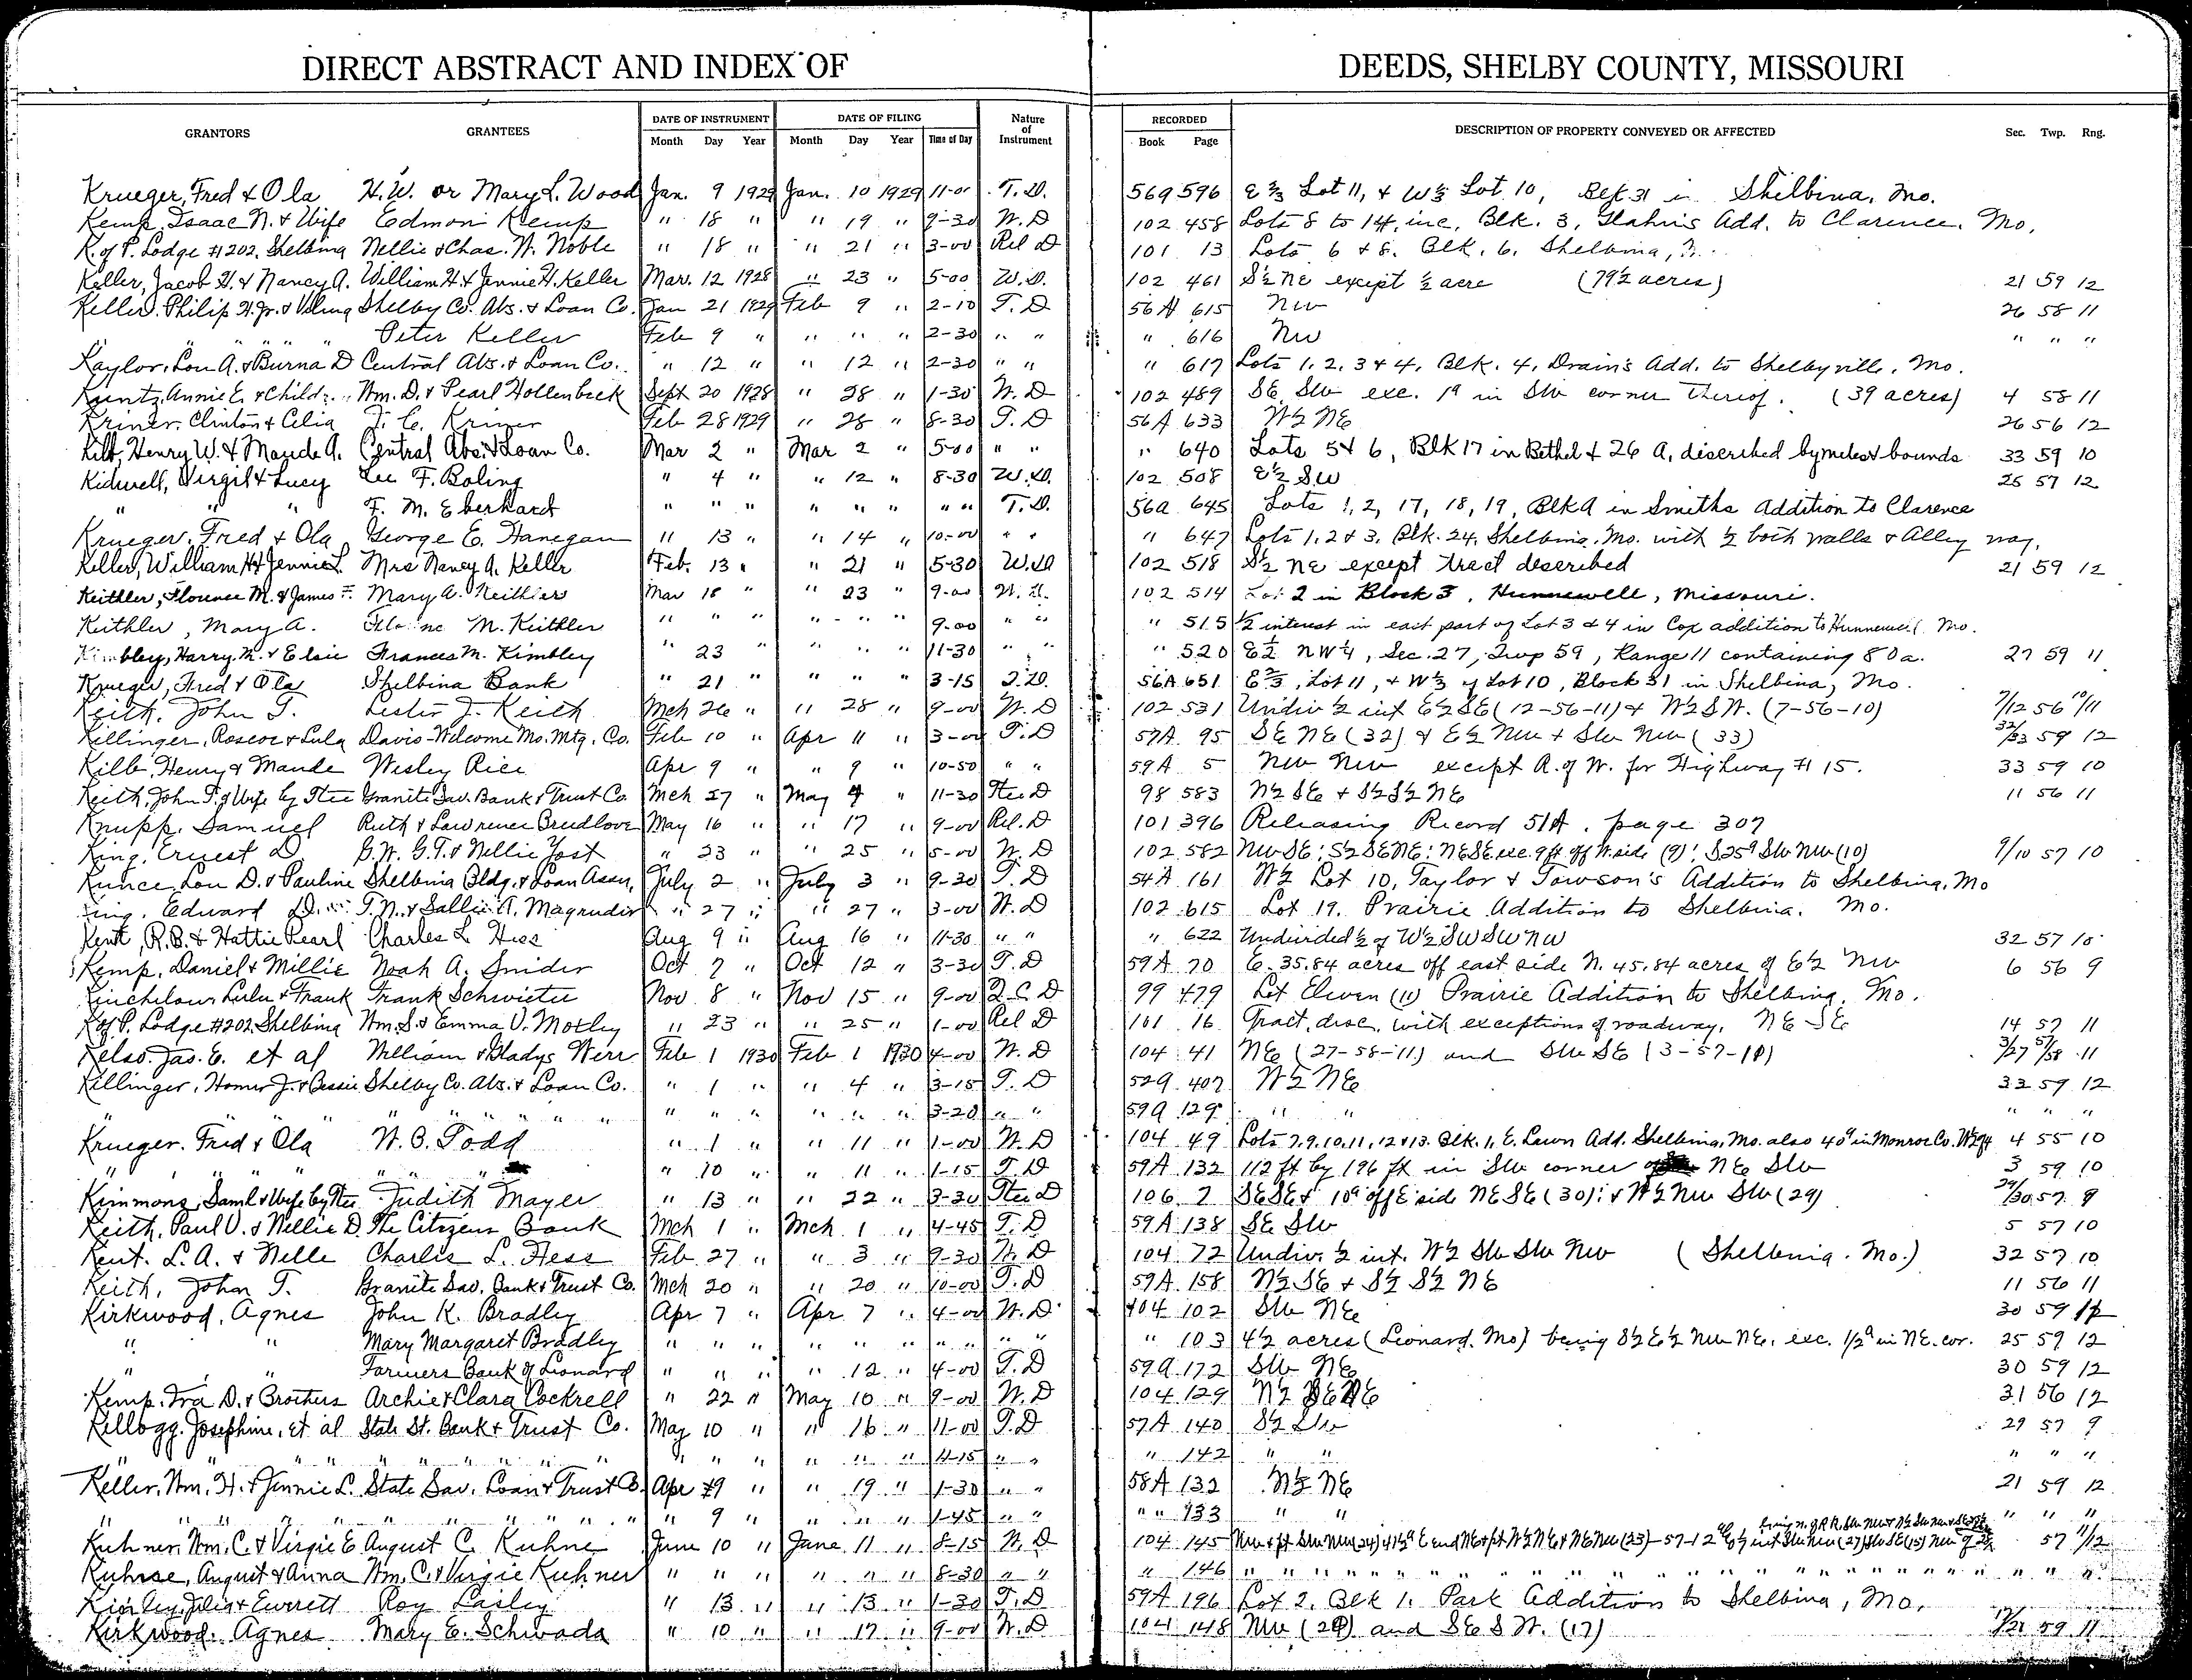 DIRECT ABSTRACT AND INDEX OF DEEDS, SHELBY COUNTY, MISSOURI
GRANTORS GRANTEES DATE OF INSTRUMENT Month Day Year DATE OF FILING Month Day Year Time of Day Nature of Instrument RECORDED Book Page DESCRIPTION OF PROPERTY CONVEYED OR AFFECTED Sec. Twp. Rng.
Krueger, Fred & Ola H.W. or Mary L. Wood Jan. 9 1929 Jan. 10 1929 11-00 T.D. 569 596 E 2/3 Lot 11, & W 1/3 Lot 10, Blk 31 in Shelbina, Mo.
Kemp, Isaac N. & Wife Edmoni Kemp " 18 " " 19 " 9-30 W.D 102 458 Lots 8 to 14, inc, Blk. 3, Hahn's Add. to Clarence, Mo.
K. of P. Lodge #202, Shelbina Nellie & Chas. W. Noble " 18 " " 21 " 3-00 Rel D 101 13 Lots 6 & 8, Blk. 6, Shelbina,
Keller, Jacob H. & Nancy A. William H. & Jennie H. Keller Mar. 12 1928 " 23 " 5-00 W.D. 102 461 S½ NE except ½ acre (79½ acres) 21 59 12
Keller, Philip H. Jr. & Shelby Co. Abs. & Loan Co. Jan 21 1929 Feb 9 " 2-10 T.D 56A 615 NW 26 58 11
" " " " Peter Keller Feb 9 " " " " 2-30 " " " 616 NW " " "
Kaylor, Lon A. & Burna D Central Abs. & Loan Co. " 12 " " 12 " 2-30 " " " 617 Lots 1, 2, 3 & 4, Blk. 4, Drain's Add. to Shelbyville, Mo.
Kuntz, Annie E. & Childr. Wm. D. & Pearl Hollenbeck Sept 20 1928 " 28 " 1-30 W.D 102 489 SE SW exc. 1a in SW corner thereof. (39 acres) 4 58 11
Kriner, Clinton & Celia J. C. Kriner Feb 28 1929 " 28 " 8-30 T.D 56A 633 W½ NE 26 56 12
Kilb, Henry W. & Maude A. Central Abs. & Loan Co. Mar 2 " Mar 2 " 5-00 " " " 640 Lots 5 & 6, Blk 17 in Bethel & 26 A. described by metes & bounds 33 59 10
Kidwell, Virgil & Lucy Lee F. Boling " 4 " " 12 " 8-30 W.D. 102 508 E½ SW 25 57 12
" " " F. M. Eberhard " " " " " " " " T.D. 56A 645 Lots 1, 2, 17, 18, 19, Blk A in Smiths Addition to Clarence
Krueger, Fred & Ola George E. Hanegan " 13 " " 14 " 10-00 " " " 647 Lots 1, 2 & 3, Blk. 24, Shelbina, Mo. with ½ both walls & Alley way.
Keller, William H & Jennie L. Mrs Nancy A. Keller Feb. 13 " " 21 " 5-30 W.D 102 518 S½ NE except tract described 21 59 12
Keithler, Florence M. & James F. Mary A. Keithler Mar 18 " " 23 " 9-00 W.D. 102 514 Lot 2 in Block 3, Hunnewell, Missouri.
Keithler, Mary A. M. Keithler " " " " " " 9.00 " " " 515 ½ interest in east part of Lot 3 & 4 in Cox addition to Hunnewell Mo.
Kimbley, Harry M. & Elsie Frances M. Kimbley " 23 " " " " 11-30 " " " 520 E½ NW¼, Sec. 27, Twp 59, Range 11 containing 80a. 27 59 11
Krueger, Fred & Ola Shelbina Bank " 21 " " " " 3-15 T.D. 56A 651 E 2/3, Lot 11, & W 1/3 of Lot 10, Block 31 in Shelbina, Mo.
Keith, John T. Lester J. Keith Mch 26 " " 28 " 9-00 W.D 102 531 Undiv ½ int E½ SE (12-56-11) & W½ SW. (7-56-10) 7/12 56 10/11
Killinger, Roscoe & Lula Davis-Welcome Mo. Mtg. Co. Feb 10 " Apr 11 " 3-00 T.D 57A 95 SE NE (32) & E½ NW & SW NW (33) 32/33 59 12
Kilb, Henry & Maude Wesley Rice Apr 9 " " 9 " 10-50 " " 59A 5 NW NW except R. of W. for Highway #15. 33 59 10
Keith, John T. & Wife by Tree Granite Sav. Bank & Trust Co. Mch 27 " May 4 " 11-30 Tree D 98 583 N½ SE & S½ S½ NE 11 56 11
Knupp, Samuel Ruth & Lawrence Breedlove May 16 " " 17 " 9-00 Rel. D 101 396 Releasing Record 51A, page 307
King, Ernest D G.W. G.T. & Nellie Yost " 23 " " 25 " 5-00 W.D 102 582 NW SE; S½ SE NE; NE SE exc. 9 ft off N. side (9); S 25a SW NW (10) 9/10 57 10
Kunce, Lon D. & Pauline Shelbina Bldg. & Loan Assn. July 2 " July 3 " 9-30 T.D 54A 161 W½ Lot 10, Taylor & Towson's Addition to Shelbina, Mo
King, Edward D. T.N. & Sallie A. Magruder " 27 " " 27 " 3-00 W.D 102 615 Lot 19, Prairie Addition to Shelbina, Mo.
Kent, R.B. & Hattie Pearl Charles L Hess Aug 9 " Aug 16 " 11-30 " " " 622 Undivided ½ of W½ SW SW NW 32 57 10
Kemp, Daniel & Millie Noah A. Snider Oct 7 " Oct 12 " 3-30 T.D 59A 70 E. 35.84 acres off east side N. 45.84 acres of E½ NW 6 56 9
Kincheloe, Lulu & Frank Frank Schwieter Nov 8 " Nov 15 " 9-00 Q.C.D 99 479 Lot Eleven (11) Prairie Addition to Shelbina, Mo.
K of P. Lodge #202, Shelbina Wm. S. & Emma V. Motley " 23 " " 25 " 1-00 Rel D 101 16 Tract, desc. with exceptions of roadway, NE SE 14 57 11
Kelso, Jas. E. et al William & Gladys Werr Feb 1 1930 Feb 1 1930 4-00 W.D 104 41 NE (27-58-11) and SW SE (3-57-11) 3/27 57/58 11
Killinger, Homer J. & Bessie Shelby Co. Abs. & Loan Co. " 1 " " 4 " 3-15 T.D 52A 407 W½ NE 33 59 12
" " " " " " " " " " " " " 3-20 " " 59A 129 " " " " "
Krueger, Fred & Ola W. B. Todd " 1 " " 11 " 1-00 W.D 104 49 Lots 7, 9, 10, 11, 12 & 13, Blk. 1, E. Lawn Add. Shelbina, Mo. also 40a in Monroe Co. 4 55 10
" " " " " " 10 " " 11 " 1-15 T.D 59A 132 112 ft by 196 ft in SW corner of NE SW 3 59 10
Kimmons, Saml & Wife by Tree Judith Mayer " 13 " " 22 " 3-30 Tree D 106 7 SE SE & 10a off E side NE SE (30); & W½ NW SW (29) 29/30 57 9
Keith, Paul V. & Nellie D. The Citizens Bank Mch 1 " Mch 1 " 4-45 T.D 59A 138 SE SW 5 57 10
Kent, L. A. & Nelle Charles L. Hess Feb 27 " " 3 " 9-30 W.D 104 72 Undiv. ½ int. W½ SW SW NW (Shelbina, Mo.) 32 57 10
Keith, John T. Granite Sav. Bank & Trust Co. Mch 20 " " 20 " 10-00 T.D 59A 158 N½ SE & S½ S½ NE 11 56 11
Kirkwood, Agnes John K. Bradley Apr 7 " Apr 7 " 4-00 W.D 104 102 SW NE 30 59
" " Mary Margaret Bradley " " " " " " " " " " 103 4½ acres (Leonard, Mo) being S½ E½ NW NE, exc. 1/2a in NE. cor. 25 59 12
" " Farmers Bank of Leonard " " " " 12 " 4-00 T.D 59A 172 SW NE 30 59 12
Kemp, Ira D. & Brothers Archie & Clara Cockrell " 22 " May 10 " 9-00 W.D 104 129 N½ SE NE 31 56 12
Kellogg, Josephine, et al State St. Bank & Trust Co. May 10 " " 16 " 11-00 T.D 57A 140 S½ SW 29 57 9
" " " " " " " " " " " " 11-15 " " " 142 " " " " "
Keller, Wm. H. & Jennie L. State Sav. Loan & Trust Co. Apr 9 " " 19 " 1-30 " " 58A 132 N½ NE 21 59 12
" " " " " " " " 9 " " " " 1-45 " " " " 133 " " " " "
Kuhner, Wm. C. & Virgie E August C. Kuhne June 10 " June 11 " 8-15 W.D 104 145 57 11/12
Kuhne, August & Anna Wm. C. & Virgie Kuhner " " " " " " 8-30 " " " 146 " " " " " "
Roy Lasley " 13 " " 13 " 1-30 T.D 59A 196 Lot 2, Blk 1, Park Addition to Shelbina, Mo.
Kirkwood, Agnes Mary E. Schwada " 10 " " 17 " 9-00 W.D 104 148 NW (20) and SE SW. (17) 59 11